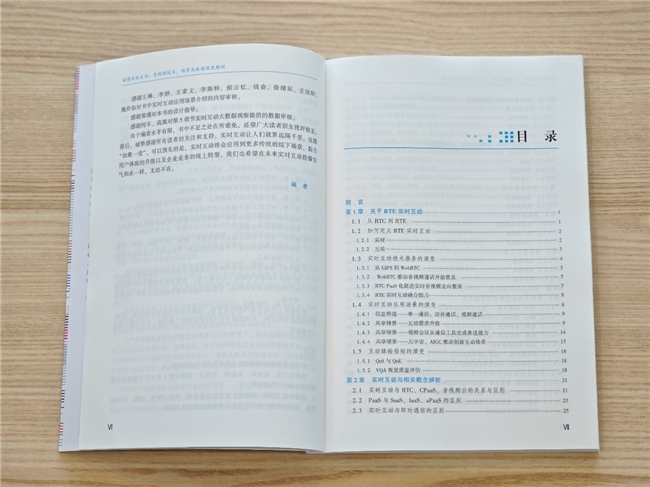 感谢王琳、李婷、王素文、李斯特、侯云忆、钱奋、徐继展、
魏伟如对书中实时互动应用场景介绍的内容审核。
感谢黄瑾对本书的设计指导。
感谢何丰、高原对第5章节实时互动大数据观察提供的数据审核。
由于编者水平有限,书中不足之处在所难免,还望广大读者朋友批评指正。
最后,诚挚感谢所有读者的关注和支持。实时互动让人们就算远隔千里,仅践
“如聚一堂”。可以预见的是,实时互动将会应用到更多传统的线下场景,助力
用户体验的升级以及企业业务的线上转型。我们也希望在未来实时互动能像空
气和水一样,无处不在。
编 者
VI
目 录
前 言
第 1 章 关于 RTE 实时互动 1
1.1 从 RTC 到 RTE 1
1.2 如何定义 RTE 实时互动 2
1.2.1 实时 2
1.2.2 互动
1.3 实时互动技术服务的演变
1.3.1 从 GIPS 到 WebRTC
1.3.2 WebRTC 推动音视频通话开始普及
1.3.3 RTC PaaS 化促进实时音视频走向繁荣
1.3.4 RTE 实时互动融合能力
1.4 实时互动应用场景的演变
1.4.1 信息传递——单一通话:语音通话、视频通话
1.4.2 共享情景——互动需求升级 9
1.4.3 共享情景——视频会议从通信工具变成普适能力
1.4.4 共享情景——元宇宙、AIGC 推动创新互动场景 14
1.5 互动体验指标的演变
1.5.1 QoS 与 QoE
1.5.2 VQA 视觉质量评估 18
第 2 章 实时互动与相关概念辨析 21
2.1 实时互动与 RTC、CPaaS、音视频云的关系与区别 21
2.2 PaaS 与 SaaS、IaaS、aPaaS 的区别 23
2.3 实时互动与即时通信的区别 25
VII